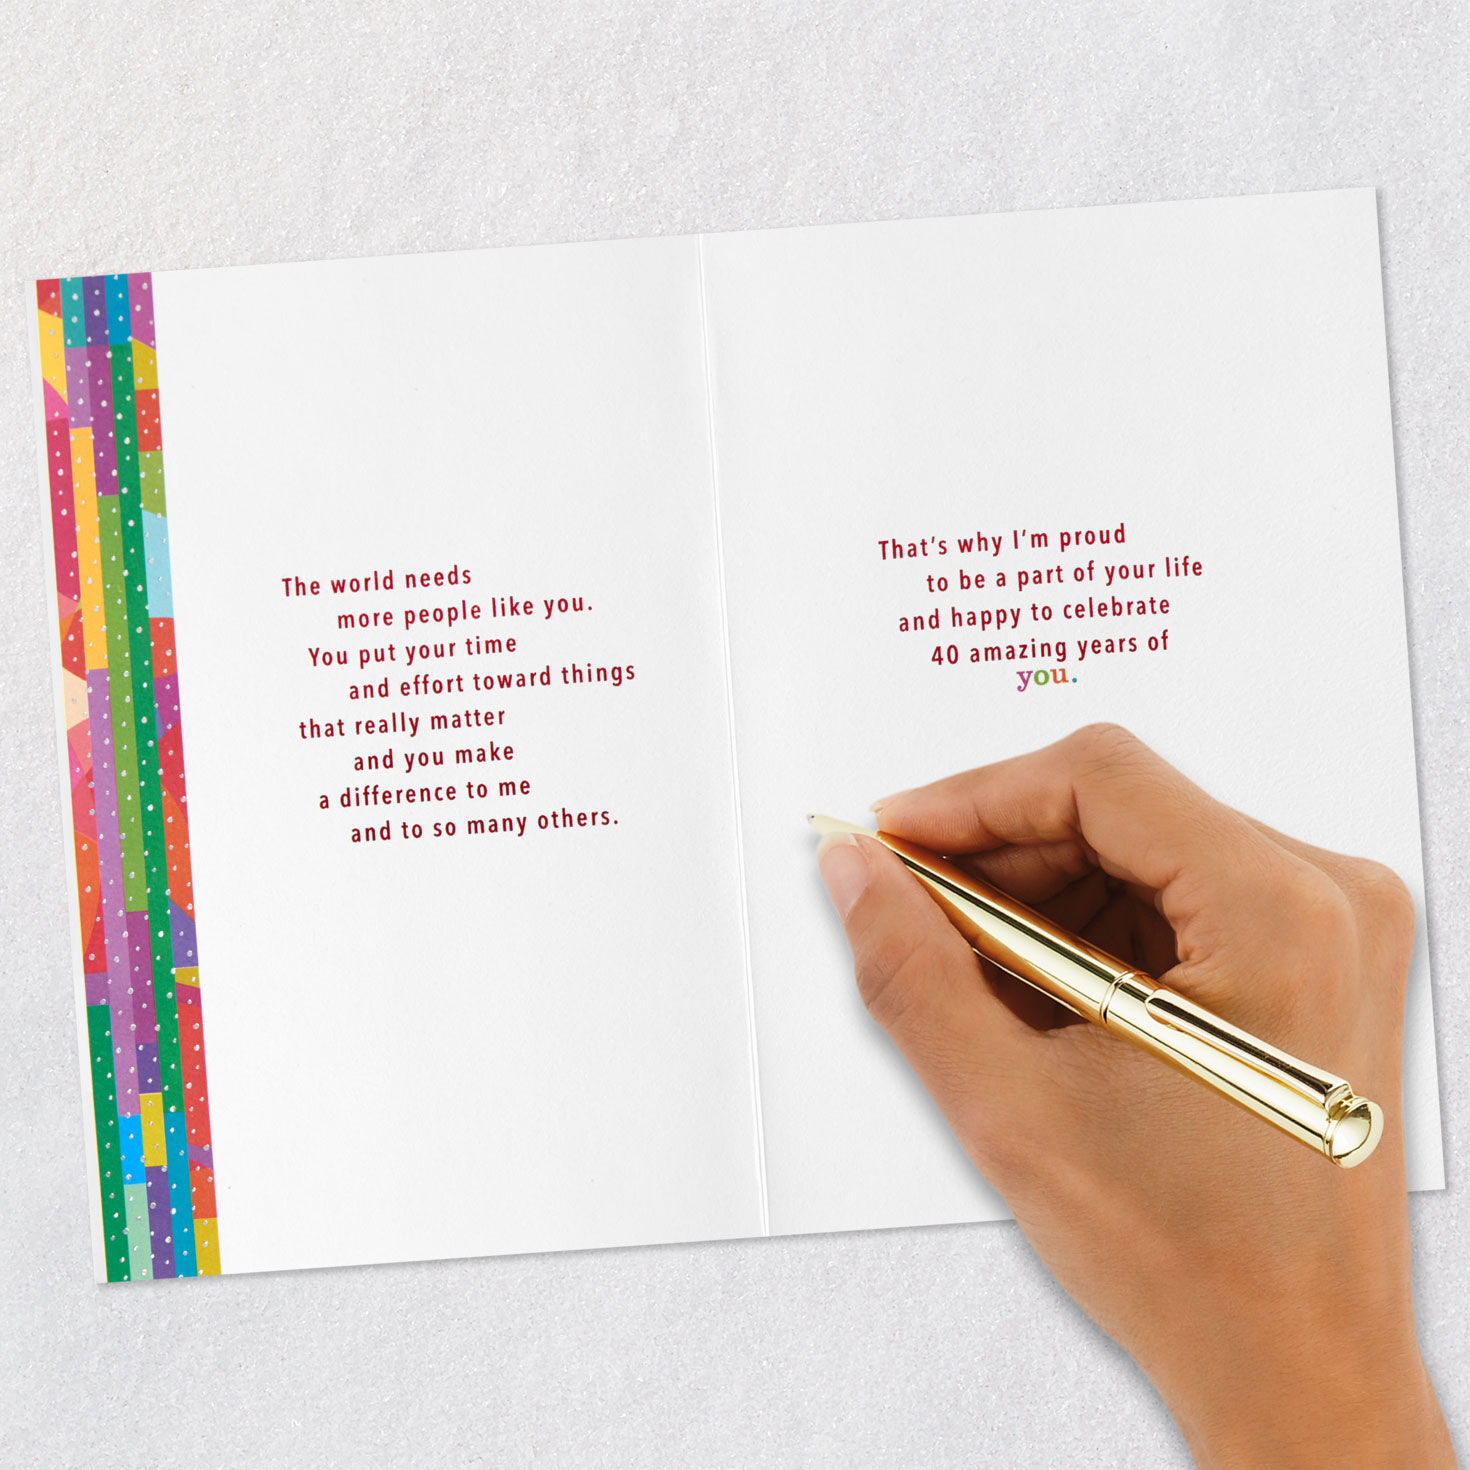 The world needs
more people like you.
You put your time
and effort toward things
that really matter
and you make
a difference to me
and to so many others.
That's why I'm proud
to be a part of your life
and happy to celebrate
40 amazing years of
you.